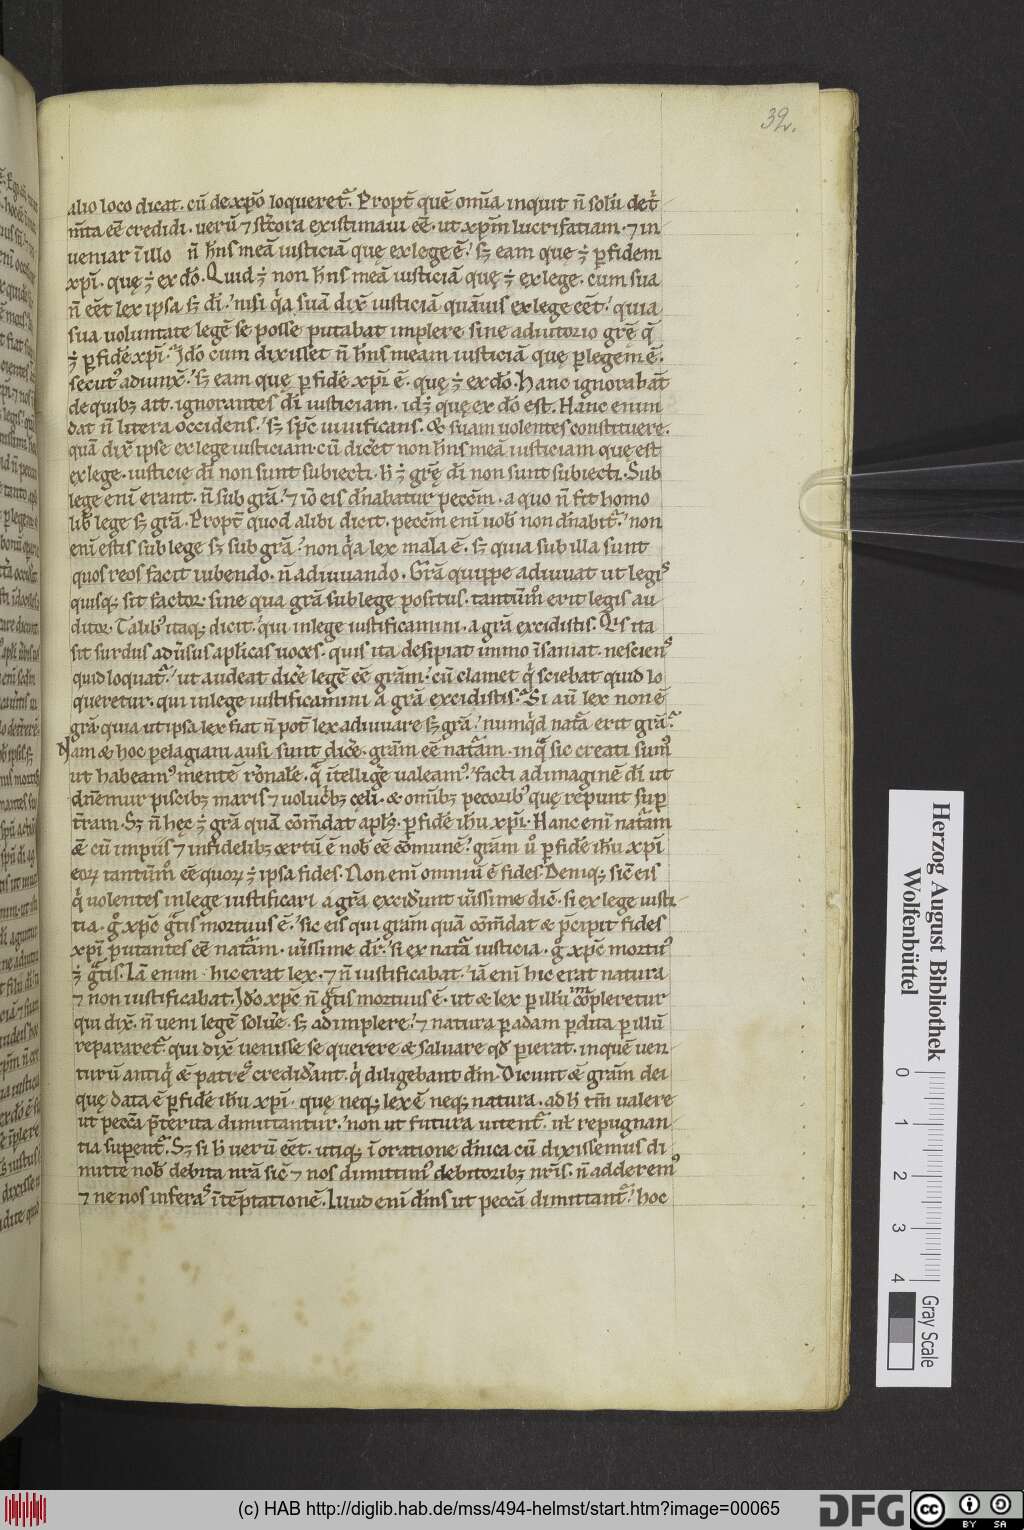 32.
alio loco dicat. cū de xp̄o loqueret᷑. Propt̄ quē om̄ia inquit n̄ solū det̓
m̄ta eē credidi. verū ⁊ st̄cora existimavi eē. ut xp̄m lucrifatiam. ⁊ in
veniar ī illo n̄ hn̄s meā iusticiā quę ex lege ē. sꝫ eam quę ē̵ ꝑ fidem
xp̄i. quę ē̵ ex dō. Quid ē̵ non hn̄s meā iusticiā quę ē̵ ex lege. cum sua
n̄ eēt lex ipsa sꝫ dī. nisi q̓a suā dix̄ iusticiā quāuis ex lege eēt. quia
sua uoluntate legē se posse putabat implere sine adiutorio grē q̄
ē̵ ꝑ fidē xp̄i. Ido cum dixisset n̄ hn̄s meam iusticiā quę ꝑ legem ē.
secut᷒ adiunx̄. sꝫ eam quę ꝑ fidē xp̄i ē. quę ē̵ ex dō. Hanc ignorabāt
de quibꝫ ait. ignorantes dī iusticiam. id ē̵ quę ex dō est. Hanc enim
dat n̄ litera occidens. sꝫ sp̄c uiuificans. & suam uolentes constituere.
quā dix̄ ipse ex lege iusticiam. cū dicēt non hn̄s meā iusticiam que est
ex lege. iusticię dī non sunt subiecti. h̄ ē̵ grę̄ dī non sunt subiecti. Sub
lege enī erant. n̄ sub grā. ⁊ iō eis dn̄abatur peccm̄. a quo n̄ fit homo
lib̄ lege sꝫ grā. Propt̄ quod alibi dicit. peccm̄ enī uob̄ non dn̄abit᷑. non
enī estis sub lege sꝫ sub grā. non q̓a lex mala ē. sꝫ quia sub illa sunt
quos reos facit iubendo. n̄ adiuuando. Grā quippe adiuuat ut legis
quisqꝫ sit factor. sine qua grā sub lege positus. tantūm̊ erit legis au
ditor. Talib᷒ itaqꝫ dicit. qui in lege iustificamini. a grā excidistis. Q̓s ita
sit surdus aduersus ap̄licas uoces. quis ita desipiat immo īsaniat. nesciens
quid loquat᷑. ut audeat dicē legē eē grām. cū clamet q̓ sciebat quid lo
queretur. qui in lege iustificamini a grā excidistis. Si aū lex non ē
grā quia ut ipsa lex fiat n̄ pot̄ lex adiuuare sꝫ grā. numq̓d natā erit grā.
Nam & hoc pelagiani ausi sunt dicē. grām eē natām. in q̄ sic creati sum᷒
ut habeam᷒ mentē rōnalē. q̄ īntelligē ualeam᷒. facti ad imaginē dī ut
dn̄emur piscibꝫ maris ⁊ uolucribꝫ celi. & omībꝫ pecorib᷒ quę repunt suꝑ
t̄ram. Sꝫ n̄ hęc ē̵ grā quā cōm̄dat apl̄s. ꝑ fidē ih̄u xp̄i. Hanc enī natām
& cū impiis ⁊ infidelibꝫ certū ē nob̄ eē cōmunē. grām ů ꝑ fidē ih̄u xp̄i
eoꝝ tantūm̊ eē quoꝝ ē̵ ipsa fides. Non enī omniū ē fides. Deniqꝫ sic̄ eis
q̓ uolentes in lege iustificari a grā excid̄unt ūissime dic̄. si ex lege iusti
tia. g̊ xp̄c gt̄is mortuus ē. sic eis qui grām quā cōm̄dat & p̄cipit fides
xp̄i putantes eē natām. ūissime dr̄. si ex natā iusticia. g̊ xp̄c mortu᷒
ē̵ gt̄is. Iā enim hic erat lex. ⁊ n̄ iustificabat. iā enī hic erat natura
⁊ non iustificabat. Ido xp̄c n̄ gt̄is mortuus ē. ut & lex ꝑ illū impleretur
qui dix̄. n̄ ueni legē soluē. sꝫ adimplere. ⁊ natura ꝑ adam ꝑdita ꝑ illū
repararet᷑. qui dix̄ uenisse se querere & saluare qd̄ ꝑierat. in quē uen
turū antiq̓ & patres credid̄ant. q̓ diligebant dm̄. Dicunt & grām dei
quę data ē ꝑ fidē ih̄u xp̄i. quę neqꝫ lex ē neqꝫ natura. ad h̄ tm̄ ualere
ut peccā p̄terita dimittantur. non ut futura uitent᷑. ut̄ repugnan
tia suꝑent᷑. Sꝫ si h̄ uerū eēt. utiqꝫ ī oratione dn̄ica cū dixissemus di
mitte nob̄ debita nr̄a sic̄ ⁊ nos dimittim᷒ debitoribꝫ nr̄is. n̄ adderem᷒
⁊ ne nos inferas ī tēptationē. Illud enī dim̄s ut peccā dimittant᷑. hoc
Herzog August Bibliothek
Wolfenbüttel
0 1 2 3 4
Gray Scale
(c) HAB http://diglib.hab.de/mss/494-helmst/start.htm?image=00065
DFG
cc BY SA